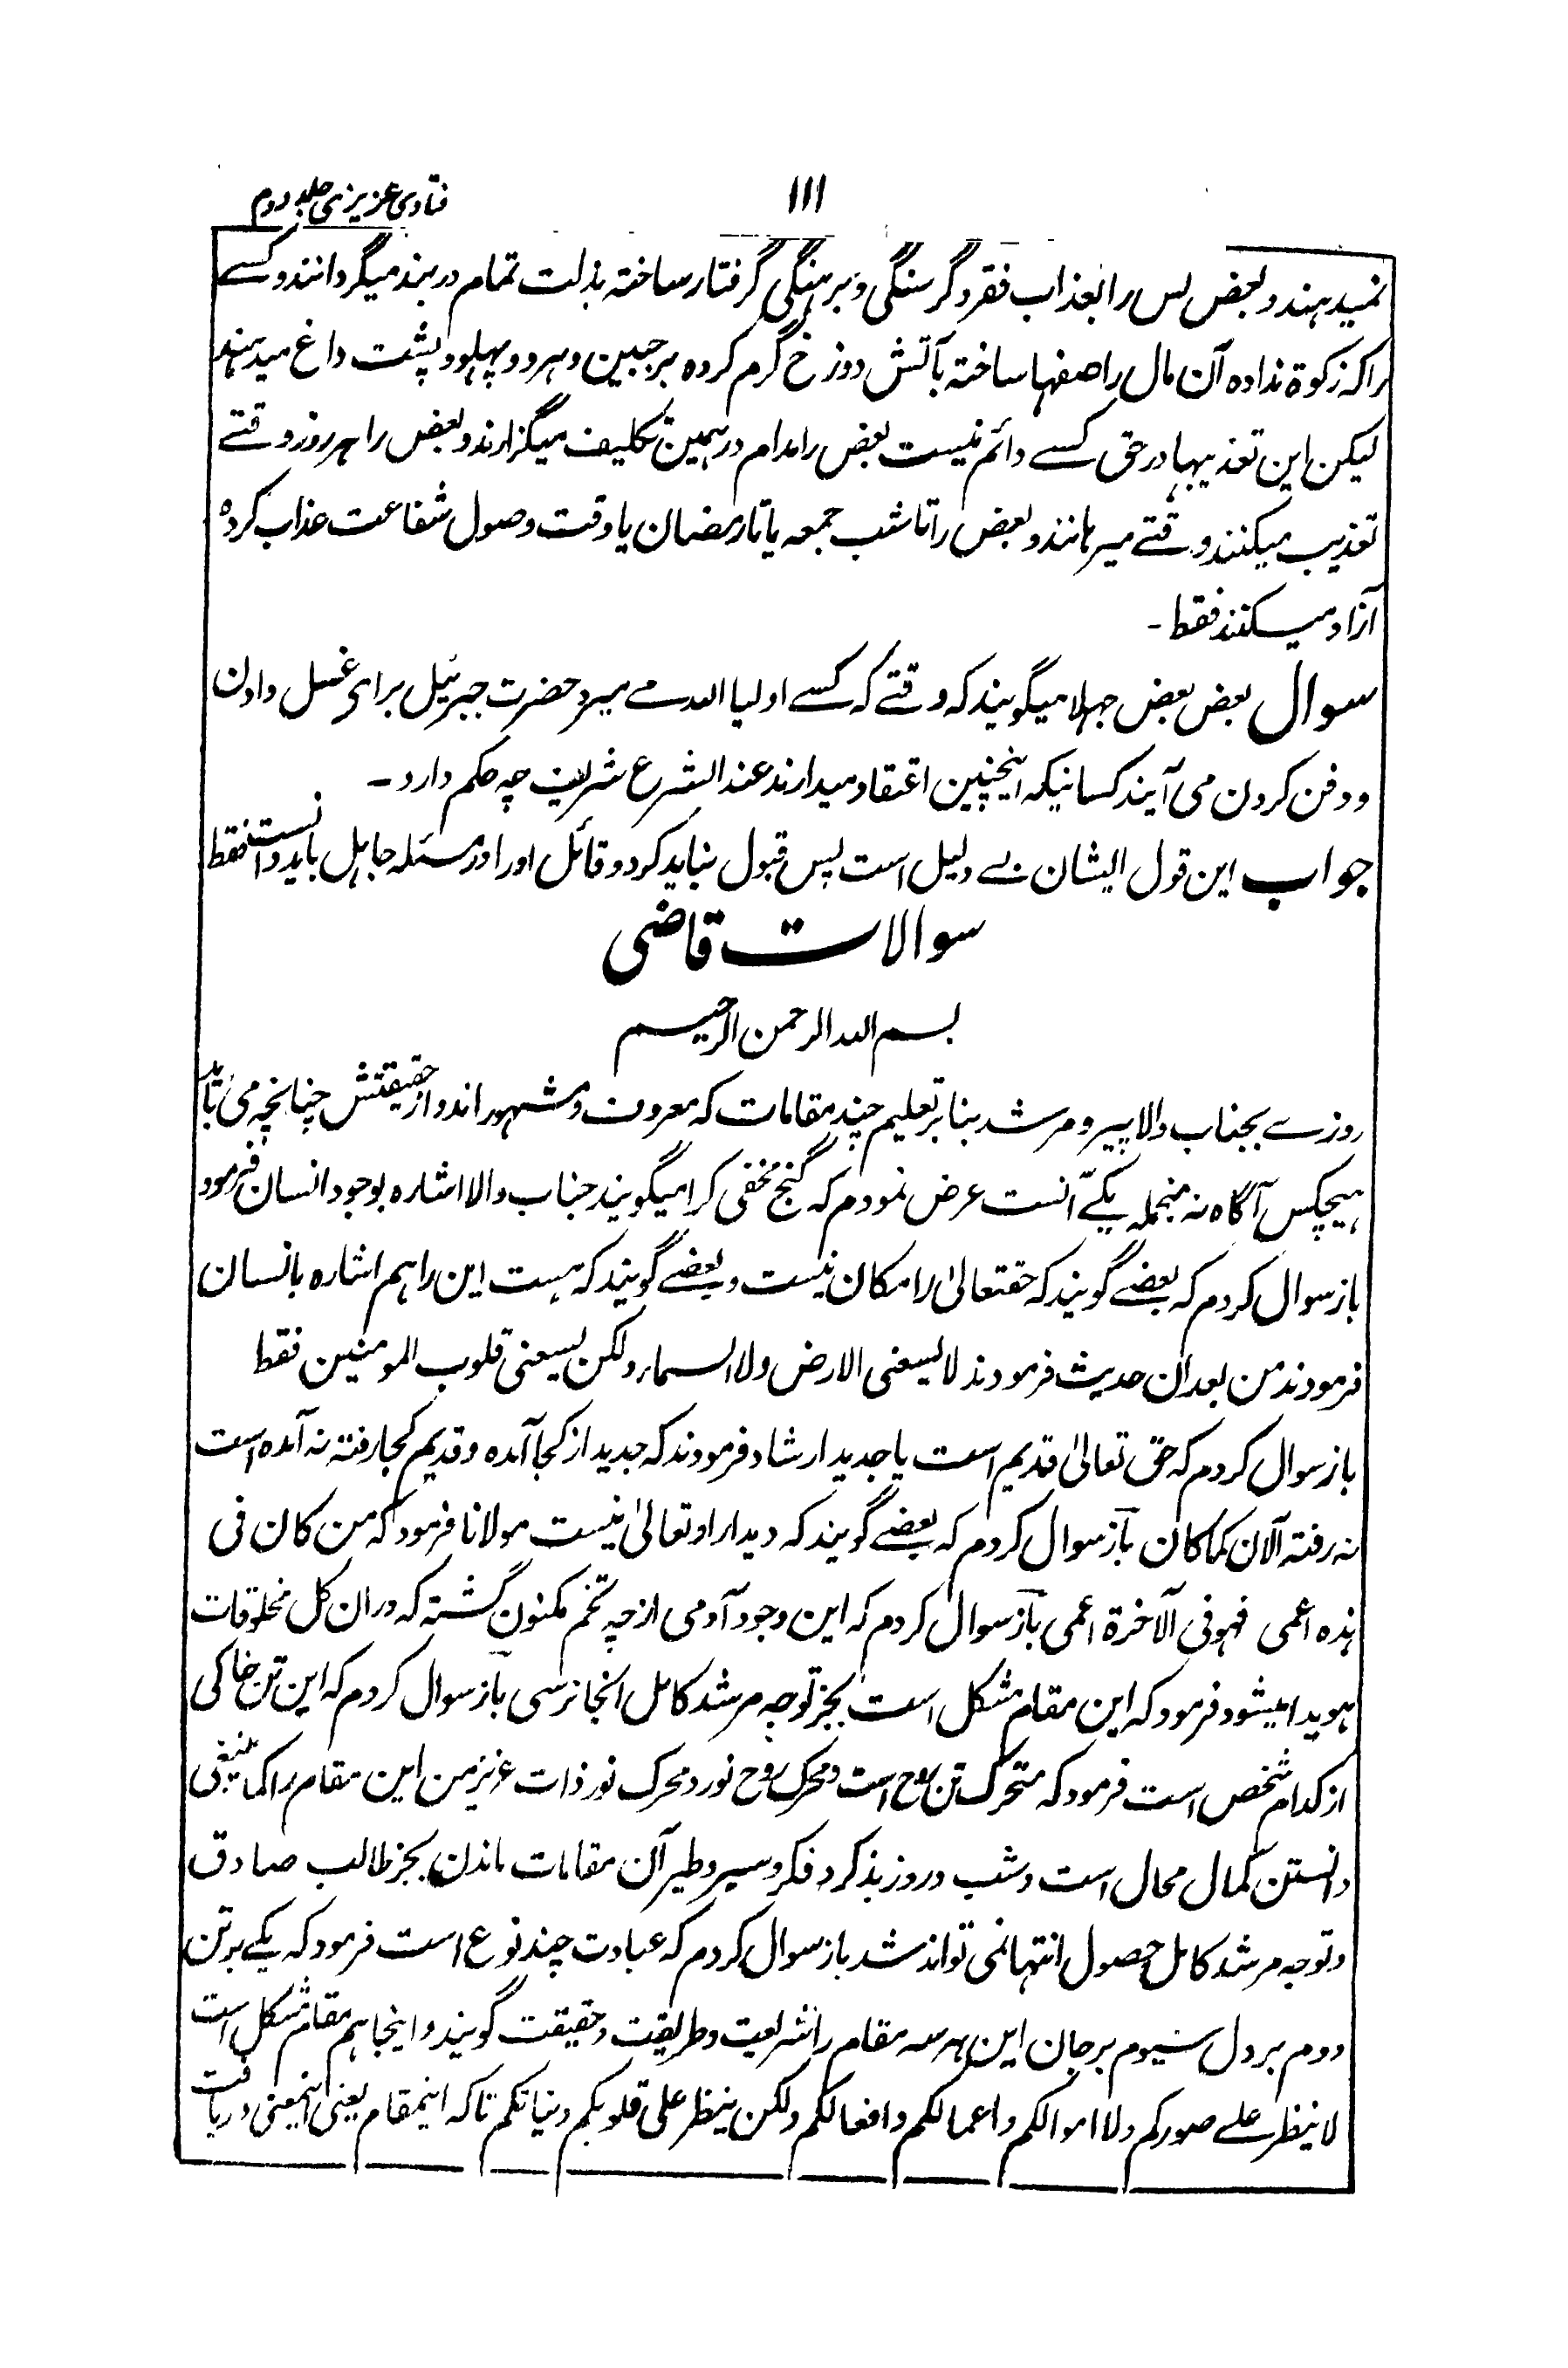 فتاوی عزیزی جلد دوم
۱۱۱
نمیدہند و بعض بس را بعذاب فقر و گرسنگی و برہنگی گرفتار ساختہ بذلت تمام در بند میگردانند و کسے
را کہ زکوۃ ندادہ آن مال را صفہا ساختہ بآتش دوزخ گرم کردہ بر جبین و ہر دو پہلو و پشت داغ میدہند
لیکن این تعذیبہا در حق کسے دائم نیست بعض را مدام در ہمین تکلیف میگزارند و بعض را ہر روز وقتے
تعذیب میکنند و وقتے میرہانند و بعض را تا شب جمعہ یا تا رمضان یا وقت وصول شفاعت عذاب کردہ
آزاد میکنند فقط ۔
سوال بعض بعض جہلا میگویند کہ وقتے کہ کسے اولیا اللہ مے میرد حضرت جبرئیل برای غسل دادن
و دفن کردن می آیند کسانیکہ اینچنین اعتقاد میدارند عند الشرع شریف چہ حکم دارد ۔
جواب این قول ایشان بے دلیل است پس قبول نباید کرد و قائل او را در مسئلہ جاہل باید دانست فقط
سوالات قاضی
بسم اللہ الرحمن الرحیم
روزے بجناب والا پیر و مرشد بنا بر تعلیم چند مقامات کہ معروف و مشہور اند و از حقیقتش چنانچہ می باید
ہیچکس آگاہ نہ منجملہ یکے آنست عرض نمودم کہ گنج مخفی کرا میگویند جناب والا اشارہ بوجود انسان فرمود
باز سوال کردم کہ بعضے گویند کہ حقتعالیٰ را مکان نیست و بعضے گویند کہ ہست این را ہم اشارہ بانسان
فرمودند من بعد ان حدیث فرمودند لا یسعنی الارض ولا السماء ولکن یسعنی قلوب المومنین فقط
باز سوال کردم کہ حق تعالیٰ قدیم است یا جدید ارشاد فرمودند کہ جدید از کجا آمدہ و قدیم کجا رفتہ نہ آمدہ است
نہ رفتہ الآن کما کان باز سوال کردم کہ بعضے گویند کہ دیدار او تعالیٰ نیست مولانا فرمود کہ من کان فی
ہذہ اعمی فہو فی الآخرۃ اعمی باز سوال کردم کہ این وجود آدمی از چہ تخم مکنون گشتہ کہ دران کل مخلوقات
ہویدا میشود فرمود کہ این مقام مشکل است بجز توجہ مرشد کامل آنجا نرسی باز سوال کردم کہ این تن خاکی
از کدام شخص است فرمود کہ متحرک تن روح است و محرک روح نور و محرک نور ذات عزیز من این مقام را کما ینبغی
دانستن کمال محال است و شب و روز بذکر و فکر و سیر و طیر آن مقامات ماندن بجز طالب صادق
و توجہ مرشد کامل حصول انتہا نمی تواند شد باز سوال کردم کہ عبادت چند نوع است فرمود کہ یکے بر تن
دوم بر دل سیوم بر جان این ہر سہ مقام را شریعت و طریقت و حقیقت گویند و اینجا ہم مقام مشکل است
لا ینظر علے صورکم ولا اموالکم و اعمالکم و افعالکم ولکن ینظر علی قلوبکم و نیاتکم تا کہ اینمقام یعنی اینمعنی دریافت